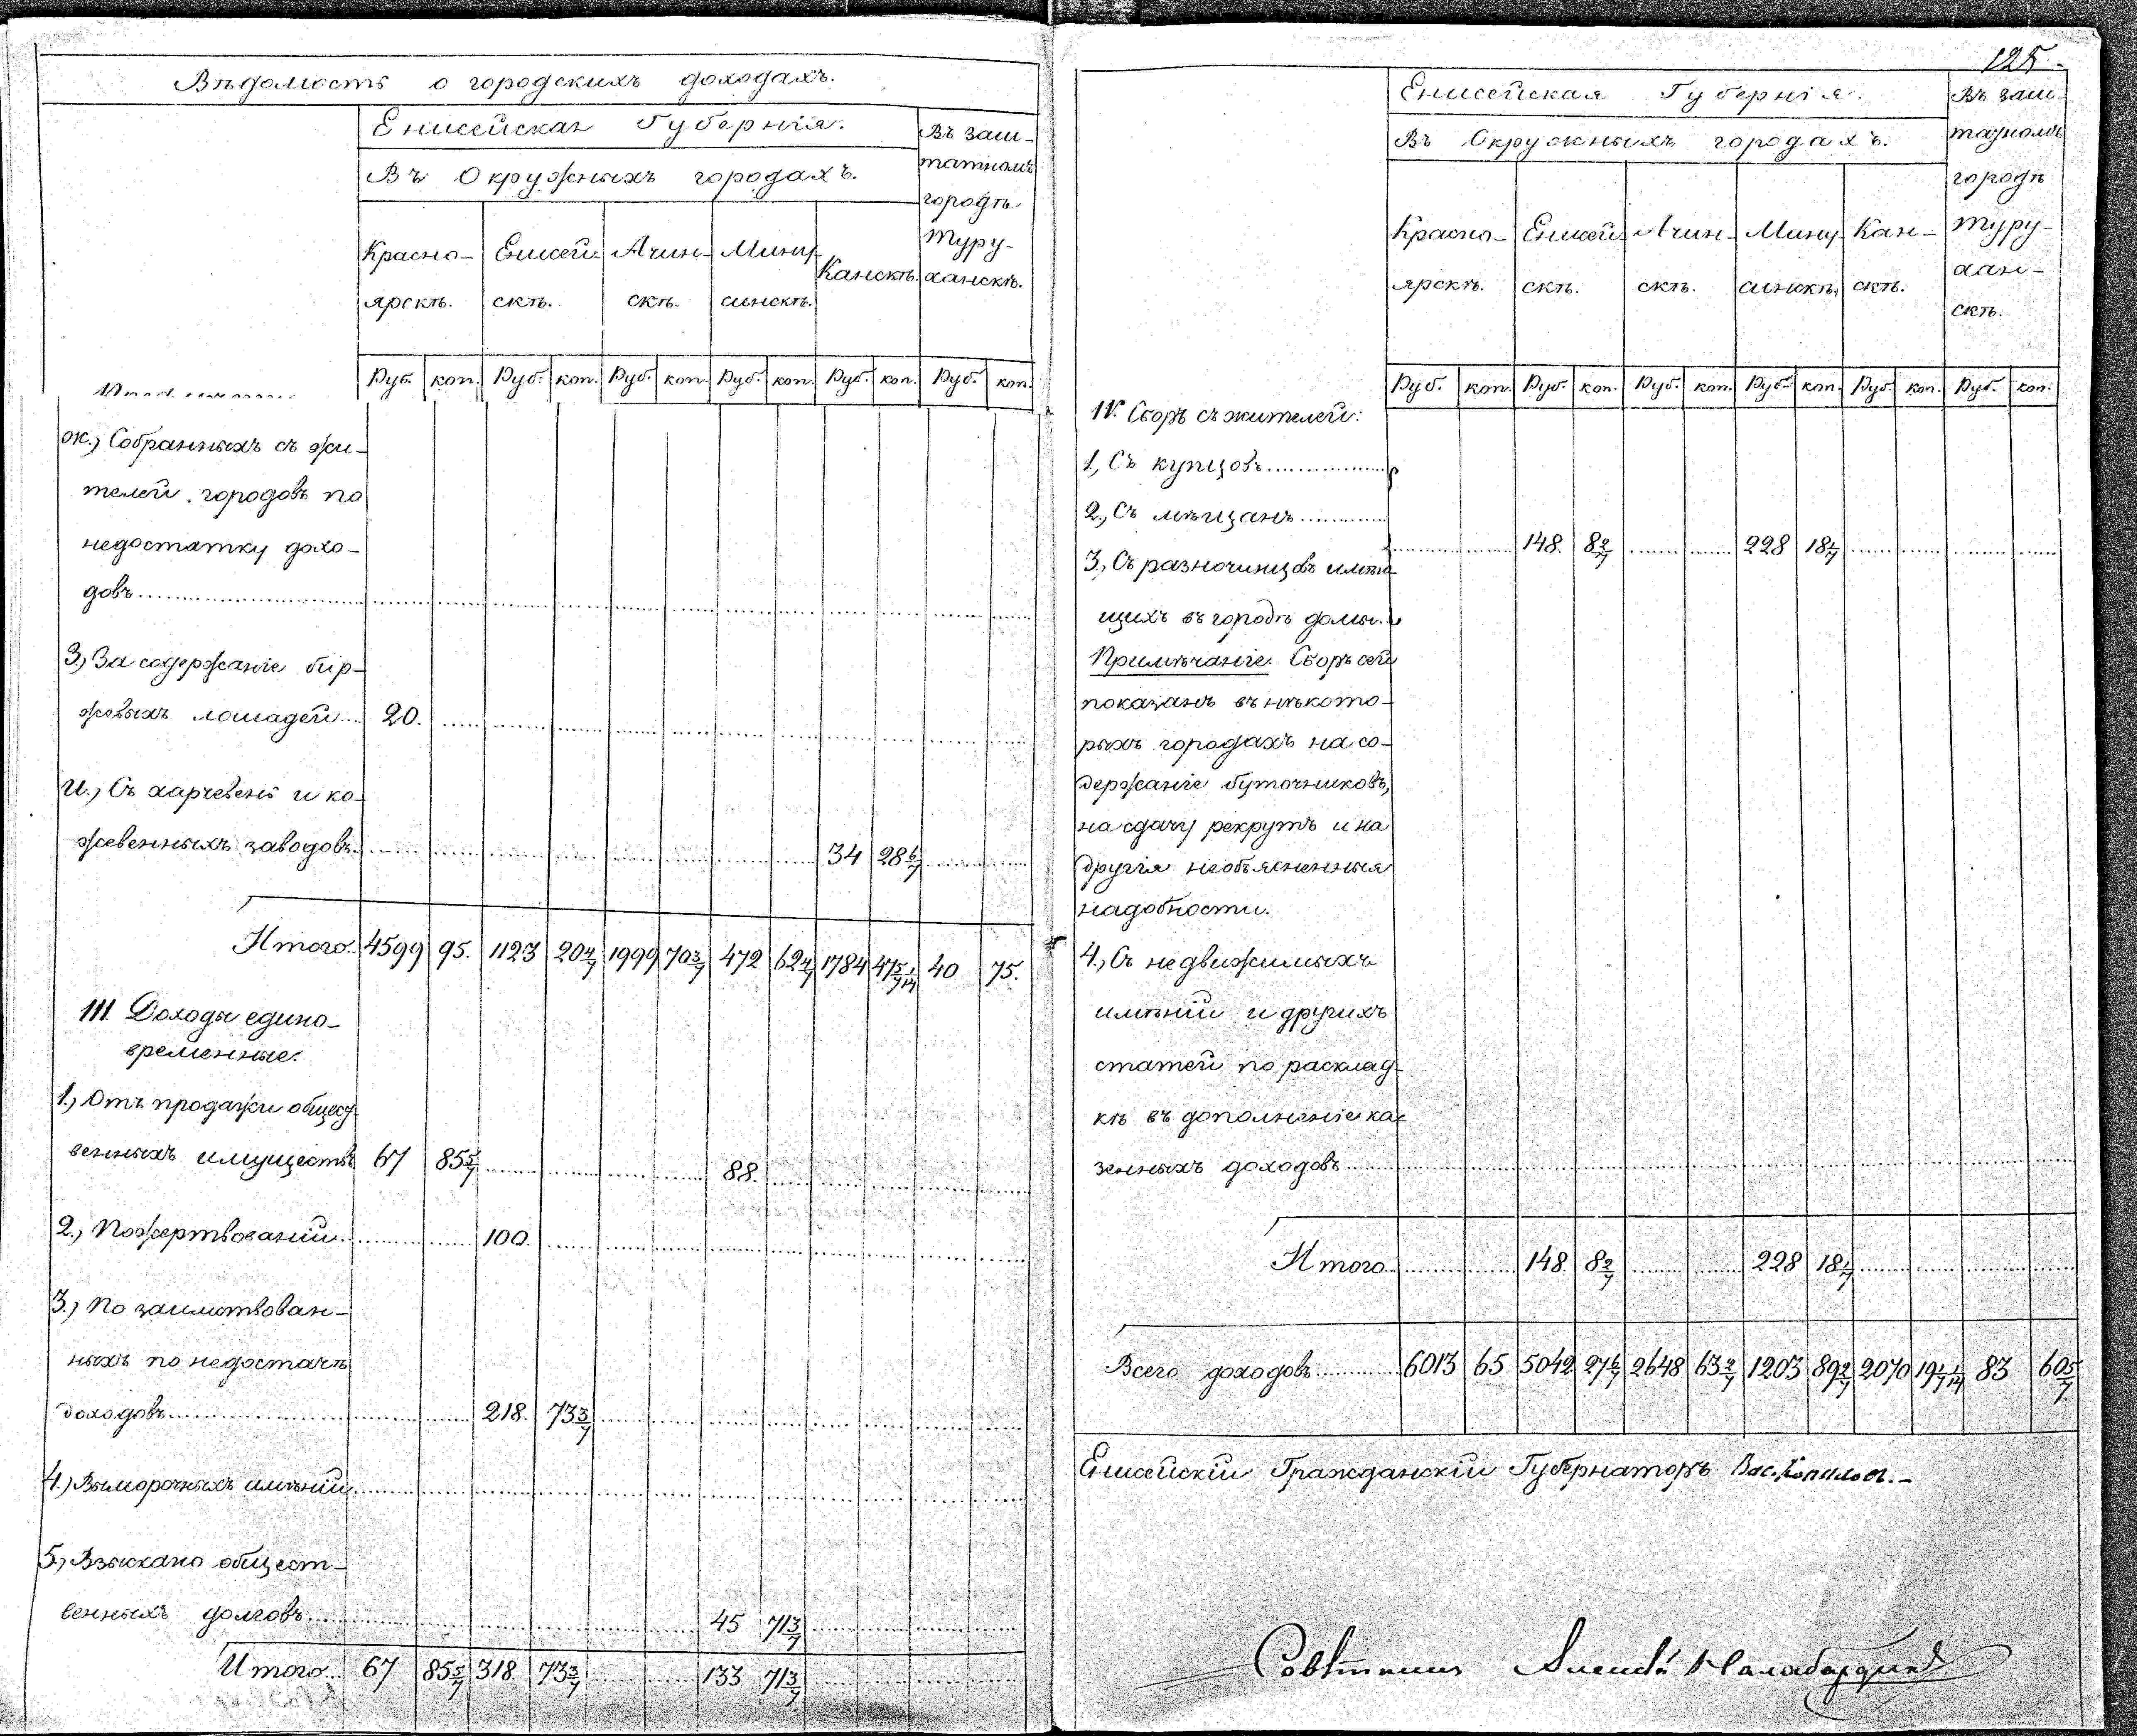 Вѣдомость о городскихъ доходахъ.
Енисейская Губернія.
Въ Окружныхъ городахъ.
Въ заш-
татномъ
городѣ
Туру-
ханскѣ.
Красно-
ярскѣ.
Енисей-
скѣ.
Ачин-
скѣ.
Мину-
синскѣ.
Канскѣ.
Руб. коп. Руб. коп. Руб. коп. Руб. коп. Руб. коп. Руб. коп.
ж.) Собранныхъ съ жи-
телей городовъ по
недостатку дохо-
довъ
З.) За содержаніе бир-
жевыхъ лошадей 20.
И.) Съ харчевень и ко-
жевенныхъ заводовъ 34 28 6/7
Итого 4599 95. 1123 20 4/7 1999 70 3/7 472 62 4/7 1784 47 5/7 1/14 40 75.
III. Доходы едино-
временные:
1.) Отъ продажи общест-
венныхъ имуществъ 67 85 5/7 88.
2.) Пожертвованій 100.
3.) По заимствован-
ныхъ по недостачѣ
доходовъ 218. 73 3/7
4.) Выморочныхъ имѣній
5.) Взыскано общест-
венныхъ долговъ 45 71 3/7
Итого 67 85 5/7 318. 73 3/7 133 71 3/7
125.
Енисейская Губернія.
Въ Окружныхъ городахъ.
Въ заш-
татномъ
городѣ
Туру-
хан-
скѣ.
Красно-
ярскѣ.
Енисей-
скѣ.
Ачин-
скѣ.
Мину-
синскѣ.
Кан-
скѣ.
Руб. коп. Руб. коп. Руб. коп. Руб. коп. Руб. коп. Руб. коп.
IV. Сборъ съ жителей:
1.) Съ купцовъ
2.) Съ мѣщанъ
148. 8 2/7 228 18 1/7
3.) Съ разночинцовъ имѣю-
щихъ въ городѣ домы
Примѣчаніе. Сборъ сей
показанъ въ нѣкото-
рыхъ городахъ на со-
держаніе буточниковъ,
на сдачу рекрутъ и на
другія необъясненныя
надобности.
4.) Съ недвижимыхъ
имѣній и другихъ
статей по расклад-
кѣ въ дополненіе ка-
зенныхъ доходовъ
Итого 148. 8 2/7 228 18 1/7
Всего доходовъ 6013 65 5042 27 6/7 2648 63 2/7 1203 89 2/7 2070 19 1/7 1/14 83 60 5/7
Енисейскій Гражданскій Губернаторъ Вас. Копыловъ.
Совѣтникъ Алексѣй